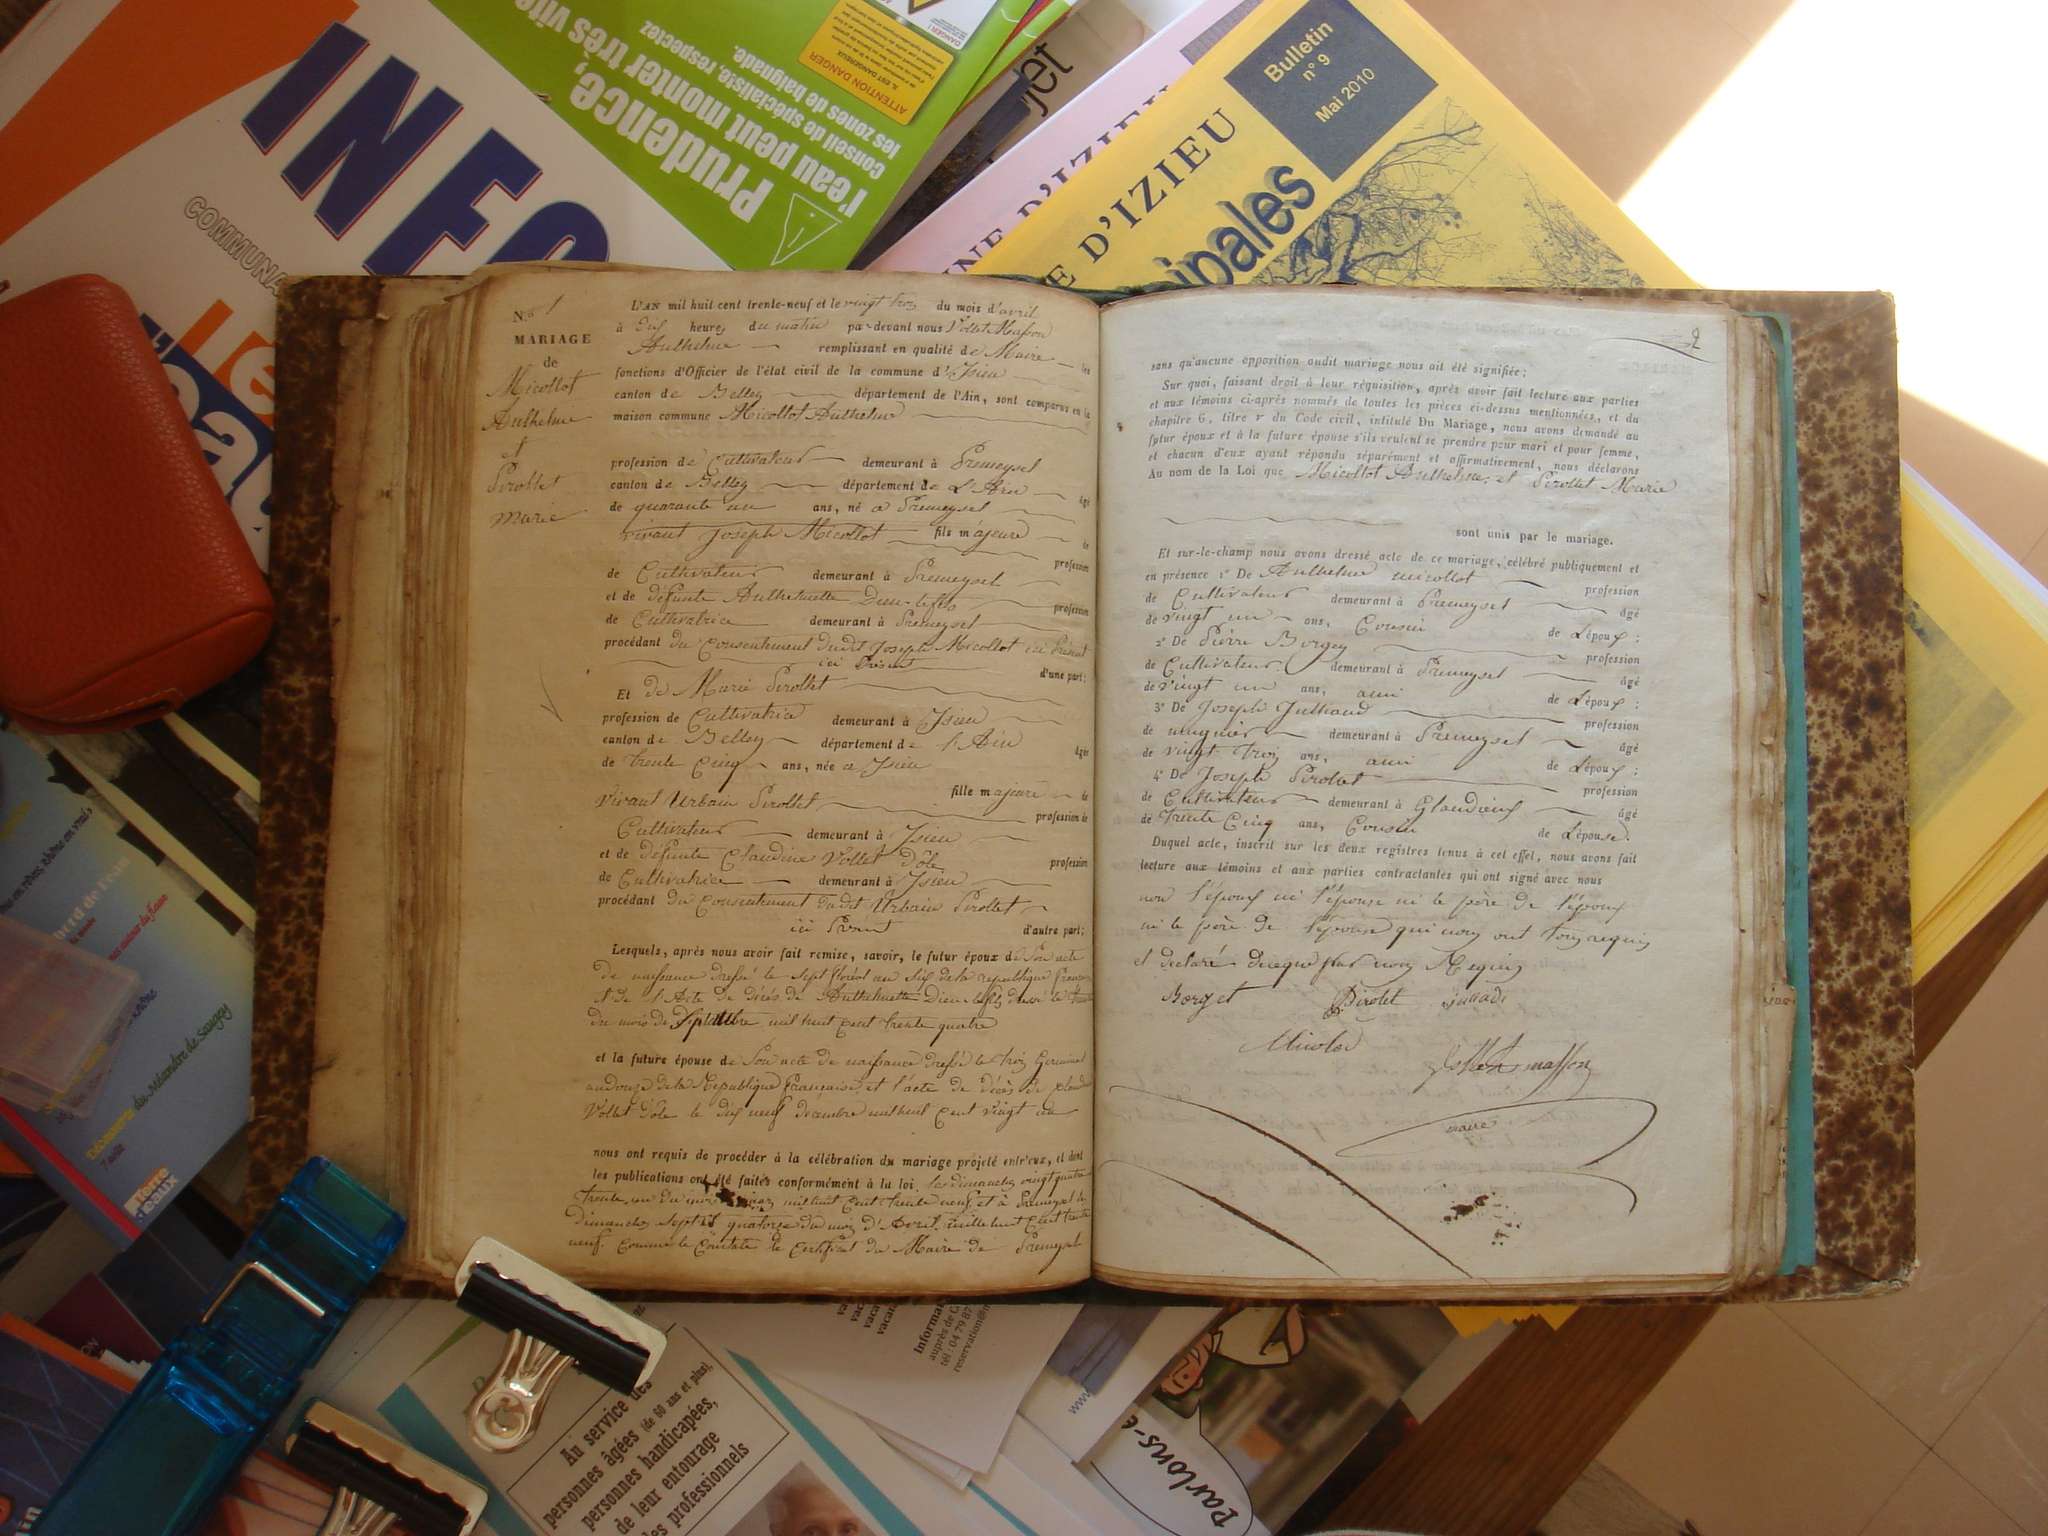 INFO
COMMUNA
Prudence,
l'eau peut monter très vite
conseil de spécialiste, respectez
les zones de baignade.
ATTENTION DANGER
DANGER !
Bulletin
n° 9
Mai 2010
NE D'IZIEU
E D'IZIEU
ipales
N.° 1
MARIAGE
de
Micollot
Anthelme
et
Pirollet
marie
L'AN mil huit cent trente-neuf et le vingt trois du mois d'avril
à dix heures du matin par-devant nous Vollet Masson
Anthelme remplissant en qualité de Maire les
fonctions d'Officier de l'état civil de la commune d'Isieu
canton de Belley département de l'Ain, sont comparus en la
maison commune Micollot Anthelme
profession de Cultivateur demeurant à Premeysel
canton de Belley département de L'Ain âgé
de quarante un ans, né a Premeysel
vivant Joseph Micollot fils majeure de
profession
de Cultivateur demeurant à Premeysel
et de défunte Anthelmette Dieu-le-fils profession
de Cultivatrice demeurant à Premeysel
procédant du Consentement dudit Joseph Micollot ici Présent
ici Présent d'une part;
Et de Marie Pirollet
profession de Cultivatrice demeurant à Isieu
canton de Belley département de l'Ain âgée
de trente cinq ans, née a Isieu
fille majeure de
vivant Urbain Pirollet profession de
Cultivateur demeurant à Isieu
et de défunte Claudine Vollet Dôle profession
de Cultivatrice demeurant à Isieu
procédant du Consentement dudit Urbain Pirollet
ici Present d'autre part;
Lesquels, après nous avoir fait remise, savoir, le futur époux de Son acte
de naissance dressé le sept floréal an six de la republique française
et de l'Acte de décés de Anthelmette Dieu-le-fils dressé le trente
du mois de Septembre mil huit cent trente quatre
et la future épouse de Son acte de naissance dressé le trois Germinal
an douze de la Republique française, et l'acte de décès de Claudine
Vollet Dôle le dix neuf décembre mil huit cent vingt un
nous ont requis de procéder à la célébration du mariage projeté entr'eux, et dont
les publications ont été faites conformément à la loi, les dimanches vingt quatre
trente un du mois mars mil huit cent trente neuf et à Premeysel le
dimanches sept et quatorze du mois d'Avril mille huit cent trente
neuf. comme le Constate le certificat du Maire de Premeysel
2
sans qu'aucune opposition audit mariage nous ait été signifiée;
Sur quoi, faisant droit à leur réquisition, après avoir fait lecture aux parties
et aux témoins ci-après nommés de toutes les pièces ci-dessus mentionnées, et du
chapitre 6, titre v du Code civil, intitulé Du Mariage, nous avons demandé au
futur époux et à la future épouse s'ils veulent se prendre pour mari et pour femme,
et chacun d'eux ayant répondu séparément et affirmativement, nous déclarons
Au nom de la Loi que Micollot Anthelme et Pirollet Marie
sont unis par le mariage.
Et sur-le-champ nous avons dressé acte de ce mariage, célébré publiquement et
en présence 1° De Anthelme micollot profession
de Cultivateur demeurant à Premeysel âgé
de vingt un ans, Cousin de L'époux;
2° De Pierre Borgey profession
de Cultivateur demeurant à Premeysel âgé
de vingt un ans, ami de L'époux;
3° De Joseph Julliand profession
de meugnier demeurant à Premeysel âgé
de vingt trois ans, ami de L'époux;
4° De Joseph Pirollet profession
de Cultivateur demeurant à Glandieux âgé
de trente Cinq ans, Cousin de L'épouse.
Duquel acte, inscrit sur les deux registres tenus à cet effet, nous avons fait
lecture aux témoins et aux parties contractantes qui ont signé avec nous
non l'époux ni l'épouse ni le père de l'époux
ni le père de l'épouse qui nous ont tous requis
et declaré
Borget Pirolet
Micolod
Vollet masson
maire
bord de l'eau
Découverte du Méandre de Saugey
Terre
d'eaux
Au service des
personnes âgées (de 60 ans et plus),
personnes handicapées,
de leur entourage
les professionnels
Informat
auprès de
tél : 04 79 87
reservation@
www
Parlons-